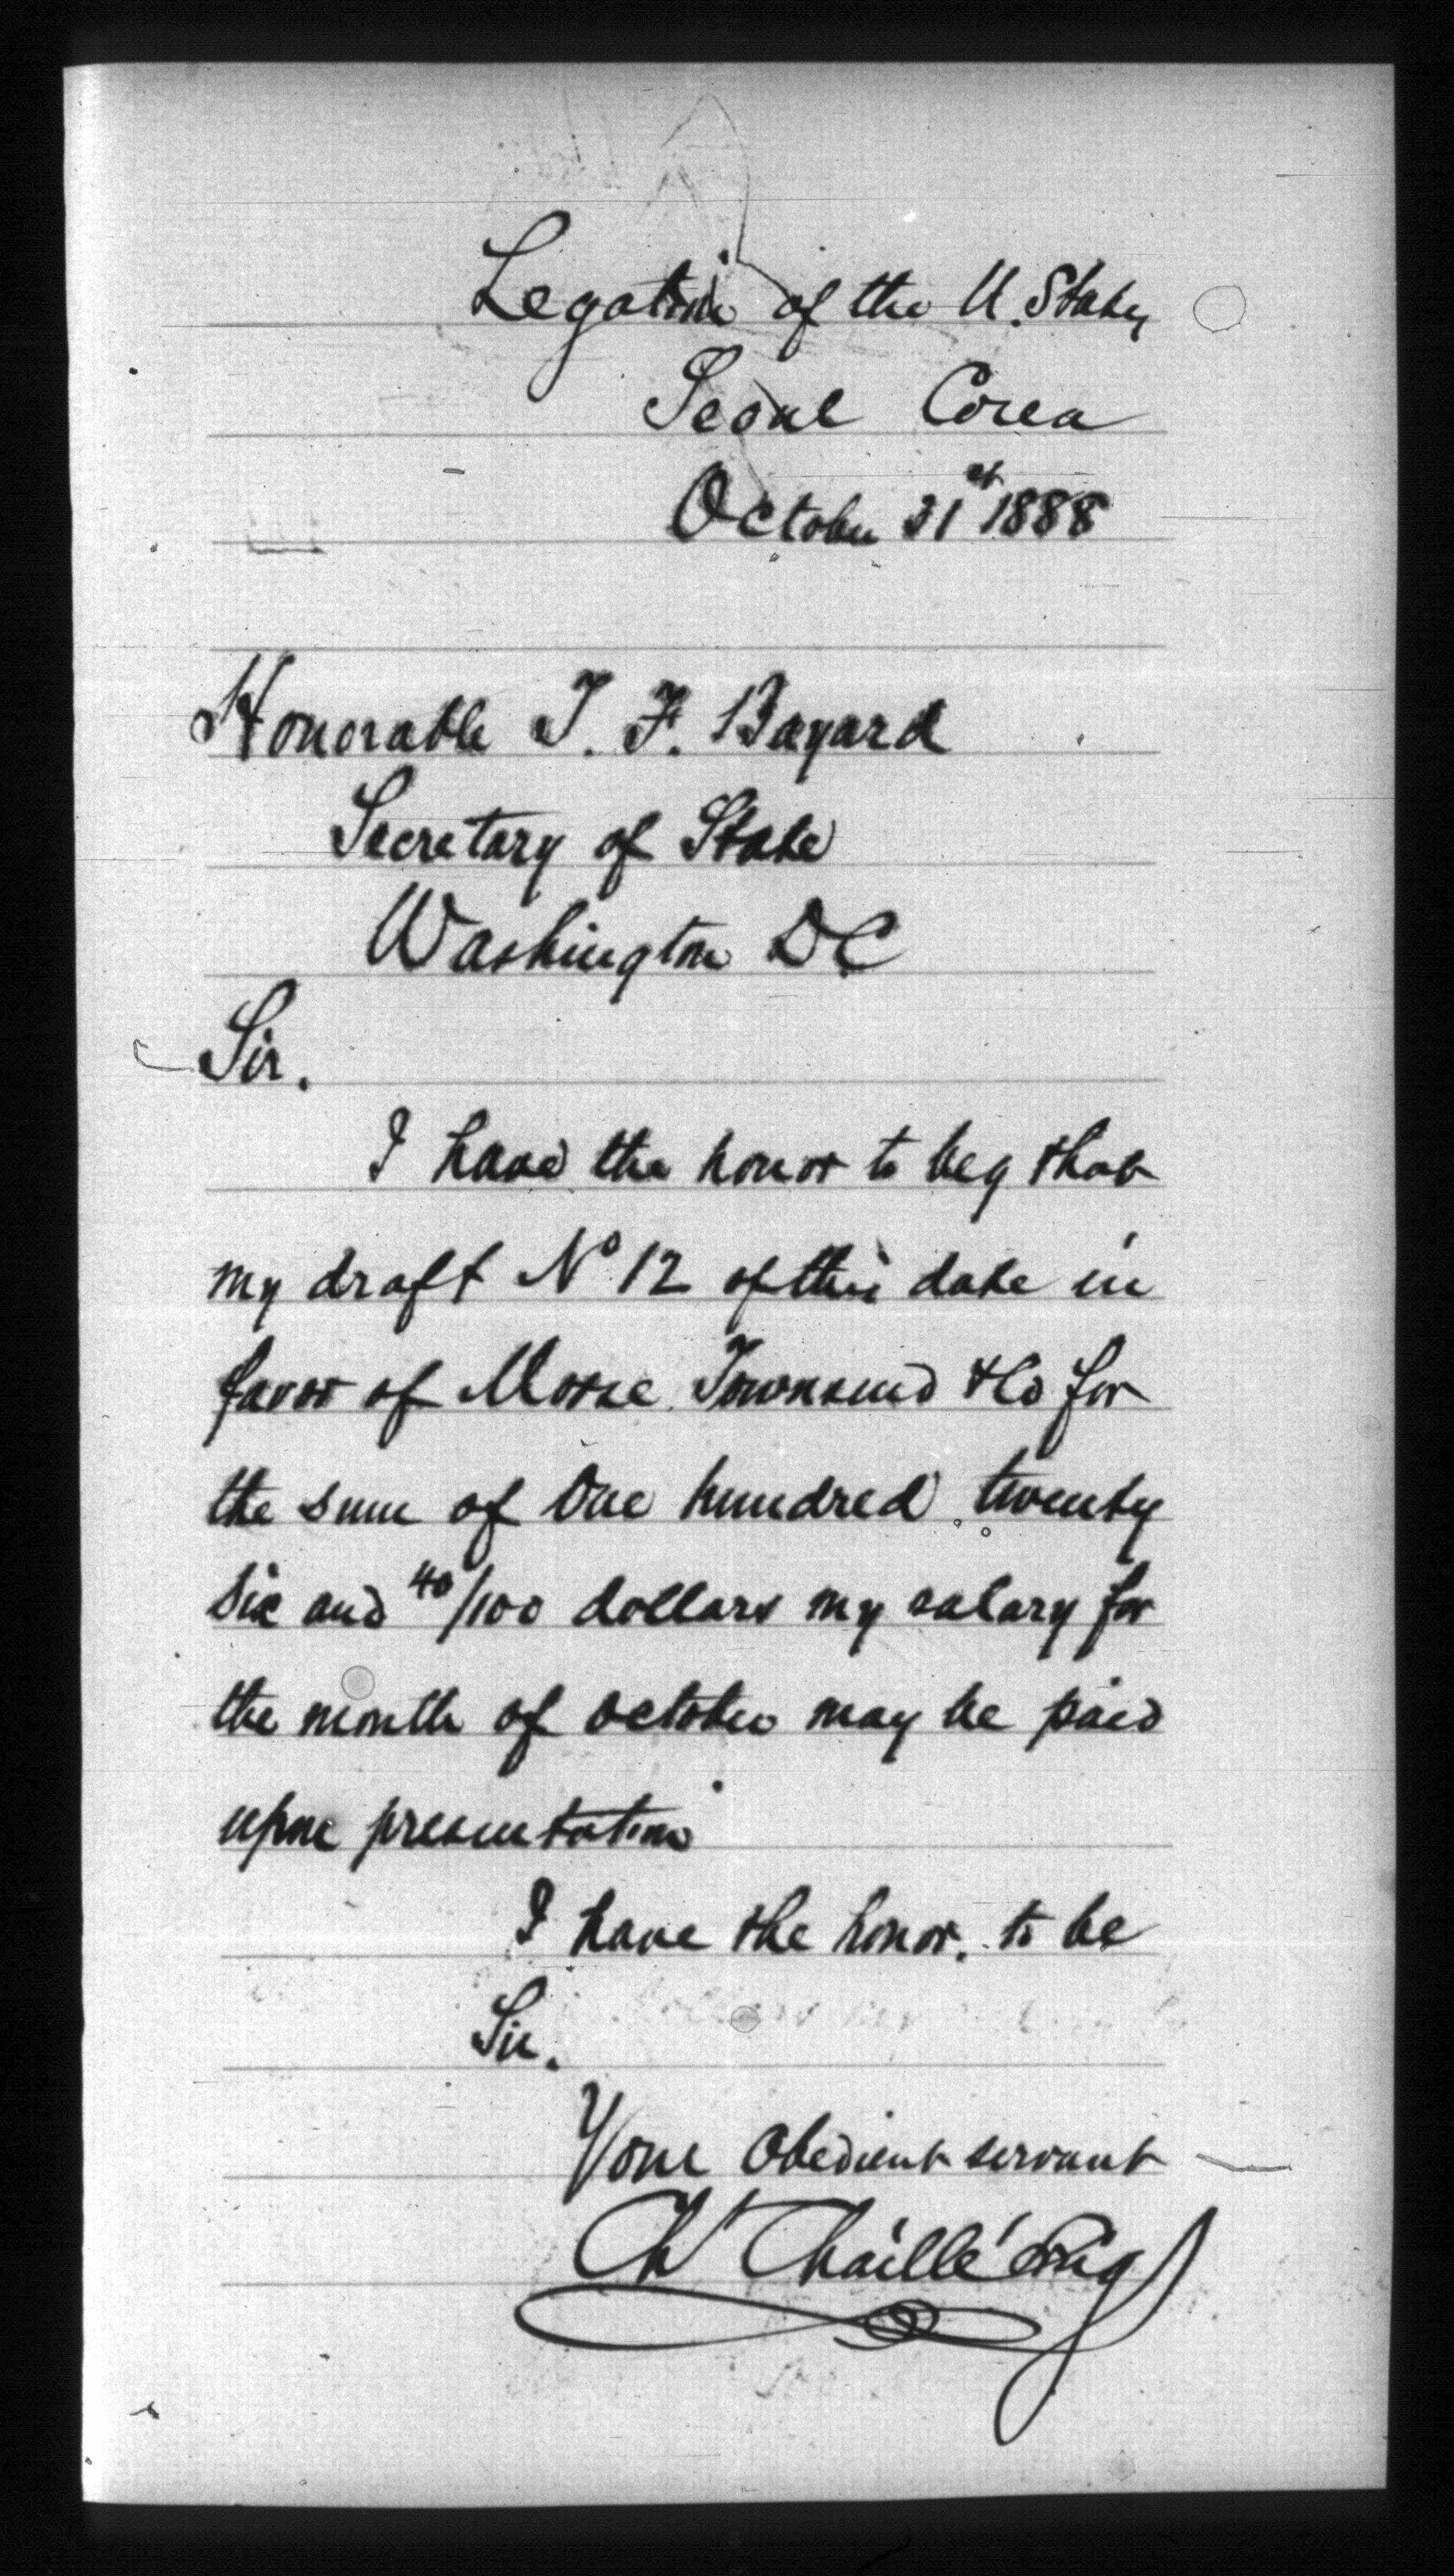 Legation of the U. States
Seoul Corea
October 31st 1888
Honorable T. F. Bayard
Secretary of State
Washington DC
Sir.
I have the honor to beg that
my draft No 12 of this date in
favor of Morse Townsend & Co for
the sum of One hundred twenty
six and 40/100 dollars my salary for
the month of October may be paid
upon presentation
I have the honor. to be
Sir.
Your Obedient servant
Ch Chaillé Long